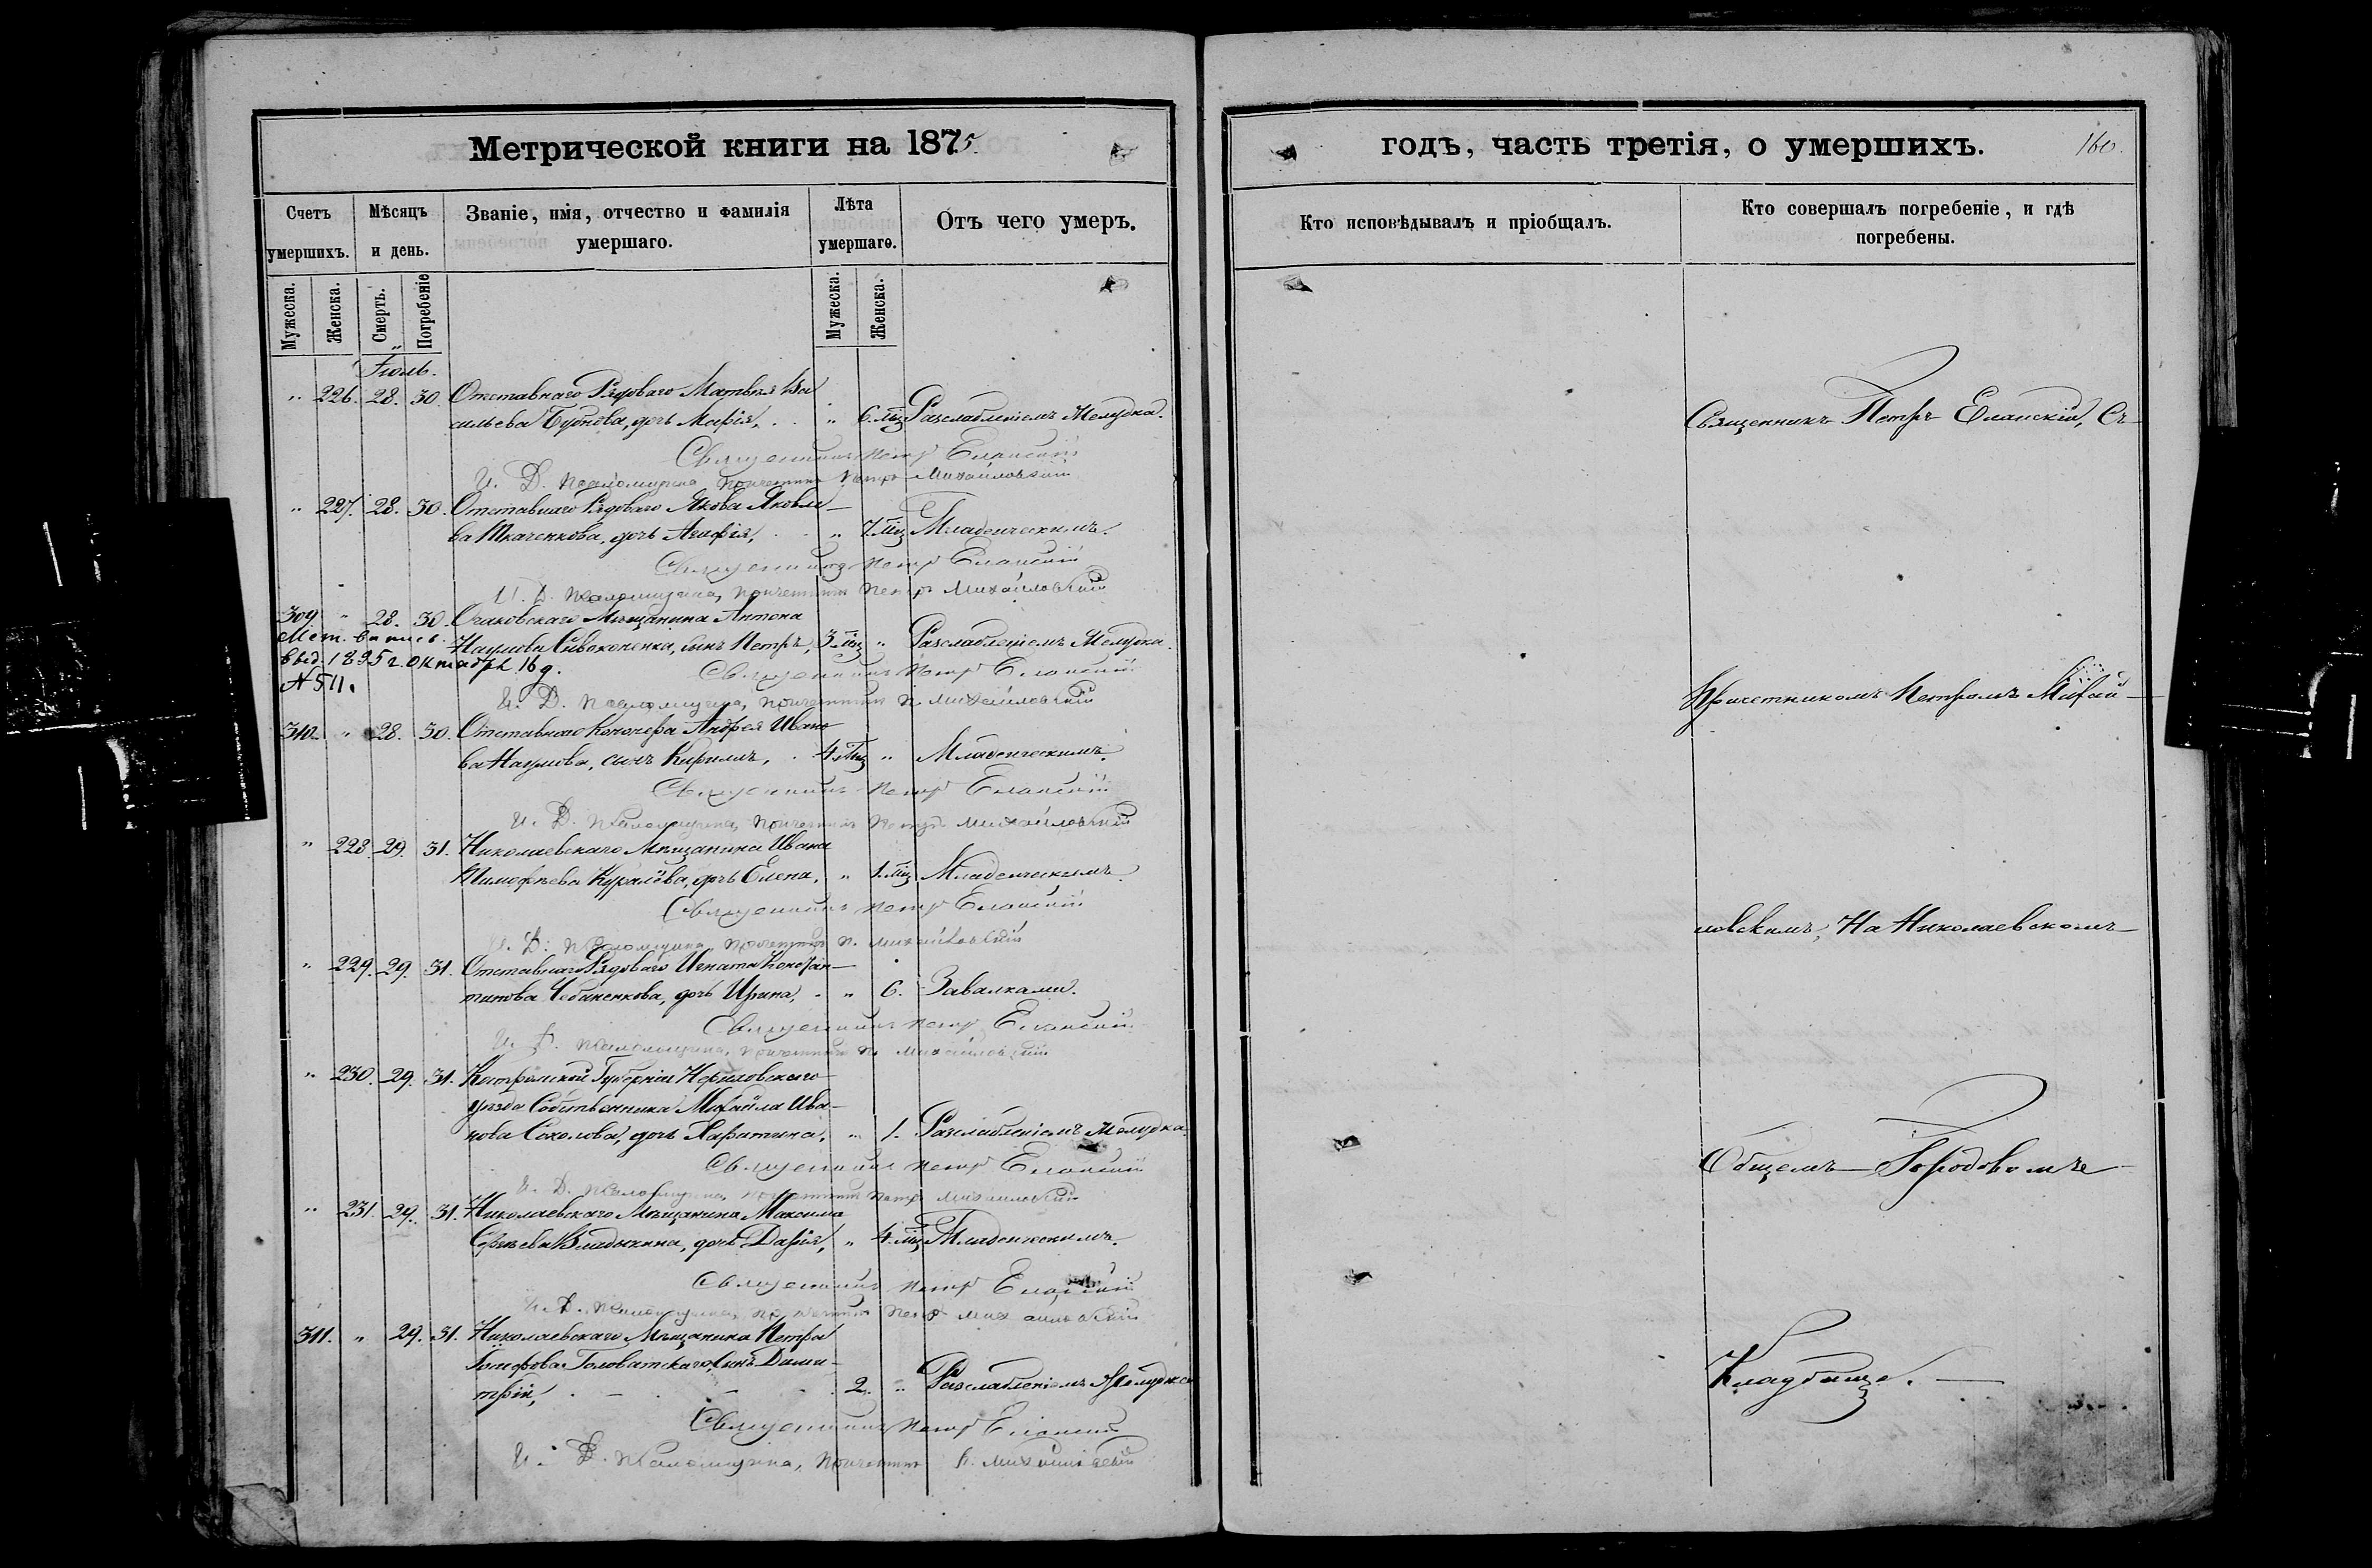 Метрической книги на 1875.
годъ, часть третія, о умершихъ.
160.
Счетъ умершихъ.
Мѣсяцъ и день.
Званіе, имя, отчество и фамилія умершаго.
Лѣта умершаго.
Отъ чего умеръ.
Кто исповѣдывалъ и пріобщалъ.
Кто совершалъ погребеніе, и гдѣ погребены.
Мужеска.
Женска.
Смерть.
Погребеніе
Мужеска.
Женска.
Іюль.
" 226. 28. 30. Отставнаго Рядоваго Матвѣя Ва
сильева Буднова, дочь Марія, " 6. мц Разслабленіемъ Желудка.
Священникъ Петръ Еланскій
И. Д. Псаломщика, Причетникъ Петръ Михайловскій
" 227. 28. 30. Отставнаго Рядоваго Якова Яковле-
ва Ткаченкова, дочь Агафія, " 7. мц Младенческимъ.
Священникъ Петръ Еланскій
И. Д. Псаломщика, Причетникъ Петръ Михайловскій
309. " 28. 30. Очаковскаго Мѣщанина Антона
Наумова Сивоконенка, сынъ Петръ, 3. мц " Разслабленіемъ Желудка.
Мет. выпис.
выд. 1895 г. Октября 16 д.
№ 511.
Священникъ Петръ Еланскій
И. Д. Псаломщика, Причетникъ П. Михайловскій
310. " 28. 30. Отставнаго Канонера Андрея Ивано
ва Наумова, сынъ Кирилъ, 4. мц " Младенческимъ.
Священникъ Петръ Еланскій
И. Д. Псаломщика, Причетникъ Петръ Михайловскій
" 228. 29. 31. Николаевскаго Мѣщанина Ивана
Тимофѣева Куралёва, дочь Елена, " 1. мц Младенческимъ.
Священникъ Петръ Еланскій
И. Д. Псаломщика, Причетникъ П. Михайловскій
" 229. 29. 31. Отставнаго Рядоваго Игната Констан-
тинова Чебаненкова, дочь Ирина, " 6. Завалками.
Священникъ Петръ Еланскій
И. Д. Псаломщика, Причетникъ П. Михайловскій
" 230. 29. 31. Костромской Губерніи
уѣзда Собственника Михайла Ива-
нова Соколова, дочь " 1. Разслабленіемъ Желудка.
Священникъ Петръ Еланскій
И. Д. Псаломщика, Причетникъ Петръ Михайловскій
" 231. 29. 31. Николаевскаго Мѣщанина Максима
Сергѣева Владыкина, дочь Дарія, " 4. мц Младенческимъ.
Священникъ Петръ Еланскій
И. Д. Псаломщика, Причетникъ Петръ Михайловскій
311. " 29. 31. Николаевскаго Мѣщанина Петра
Головатскаго, сынъ Дими-
трій, 2. " Разслабленіемъ Желудка
Священникъ Петръ Еланскій
И. Д. Псаломщика, Причетникъ П. Михайловскій
Священникъ Петръ Еланскій, Съ
Причетникомъ Петромъ Михай-
ловскимъ, На Николаевскомъ
Общемъ Городовомъ
Кладбище.